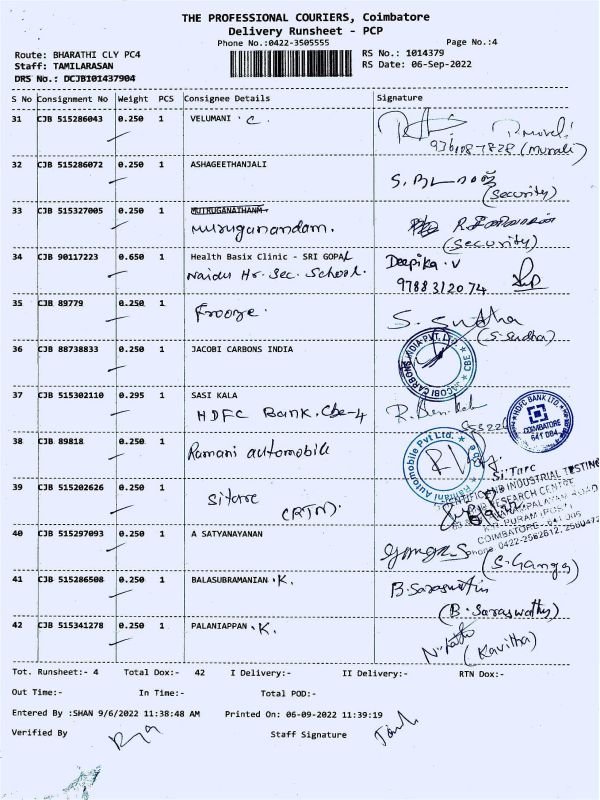 THE PROFESSIONAL COURIERS, Coimbatore
Delivery Runsheet - PCP
Phone No.:0422-3505555 Page No.:4
Route: BHARATHI CLY PC4 RS No.: 1014379
Staff: TAMILARASAN RS Date: 06-Sep-2022
DRS No.: DCJB101437904
S No Consignment No Weight PCS Consignee Details Signature
31 CJB 515286043 0.250 1 VELUMANI . C. (Murali)
32 CJB 515286072 0.250 1 ASHAGEETHANJALI (Security)
33 CJB 515327005 0.250 1 MUTRUGANATHANM
Muruganandam. (Security)
34 CJB 90117223 0.650 1 Health Basix Clinic - SRI GOPAL Deepika.V
Naidu Hr. Sec. School. 9788312074
35 CJB 89779 0.250 1 Frooze. S. Sudha
(S. Sudha)
36 CJB 88738833 0.250 1 JACOBI CARBONS INDIA
JACOBI CARBONS INDIA PVT. LTD. CBE
37 CJB 515302110 0.295 1 SASI KALA
HDFC Bank. Cbe-4
HDFC BANK LTD. COIMBATORE 641 004
38 CJB 89818 0.250 1 Ramani automobile
Ramani Automobile Pvt Ltd. Cbe
39 CJB 515202626 0.250 1 Sitarc
(RTN)
Si'Tarc
SCIENTIFIC AND INDUSTRIAL TESTING
RESEARCH CENTRE
COIMBATORE - 641 006
Phone 0422-2562612, 2560473
40 CJB 515297093 0.250 1 A SATYANAYANAN
(S. Ganga)
41 CJB 515286508 0.250 1 BALASUBRAMANIAN . K. B. Saraswathi
(B. Saraswathy)
42 CJB 515341278 0.250 1 PALANIAPPAN . K. (Kavitha)
Tot. Runsheet:- 4 Total Dox:- 42 I Delivery:- II Delivery:- RTN Dox:-
Out Time:- In Time:- Total POD:-
Entered By :SHAN 9/6/2022 11:38:48 AM Printed On: 06-09-2022 11:39:19
Verified By Staff Signature